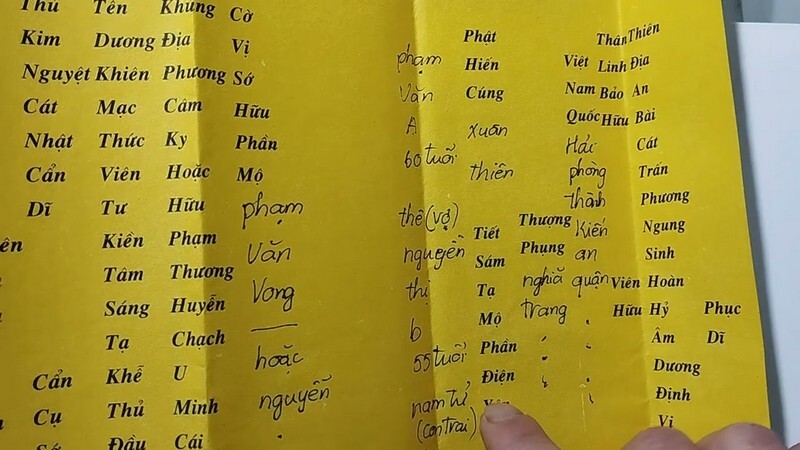 Phục Dĩ
Thiên Địa An Bài Cát Trấn Phương Ngung Sinh Hoàn Hỷ Âm Dương Định Vị
Thân Linh Bảo Hữu Viên Hữu
Việt Nam Quốc Hải phòng thành Kiến an quận
Thượng Phụng nghiã trang
Phật Hiến Cúng xuân thiên Tiết Sám Tạ Mộ Phần Điện
phạm Văn A 60 tuổi thê (vợ) nguyễn thị b 55 tuổi nam tử (con trai)
Cờ Vị Sớ Hữu Phần Mộ phạm Văn Vong hoặc nguyễn
Khung Địa Phương Cảm Ky Hoặc Hữu Phạm Thương Huyễn Chạch U Minh Cái
Tên Dương Khiên Mạc Thức Viên Tư Kiền Tâm Sáng Tạ Khể Thủ Đầu
Thủ Kim Nguyệt Cát Nhật Cẩn Dĩ Cẩn Cụ Sớ